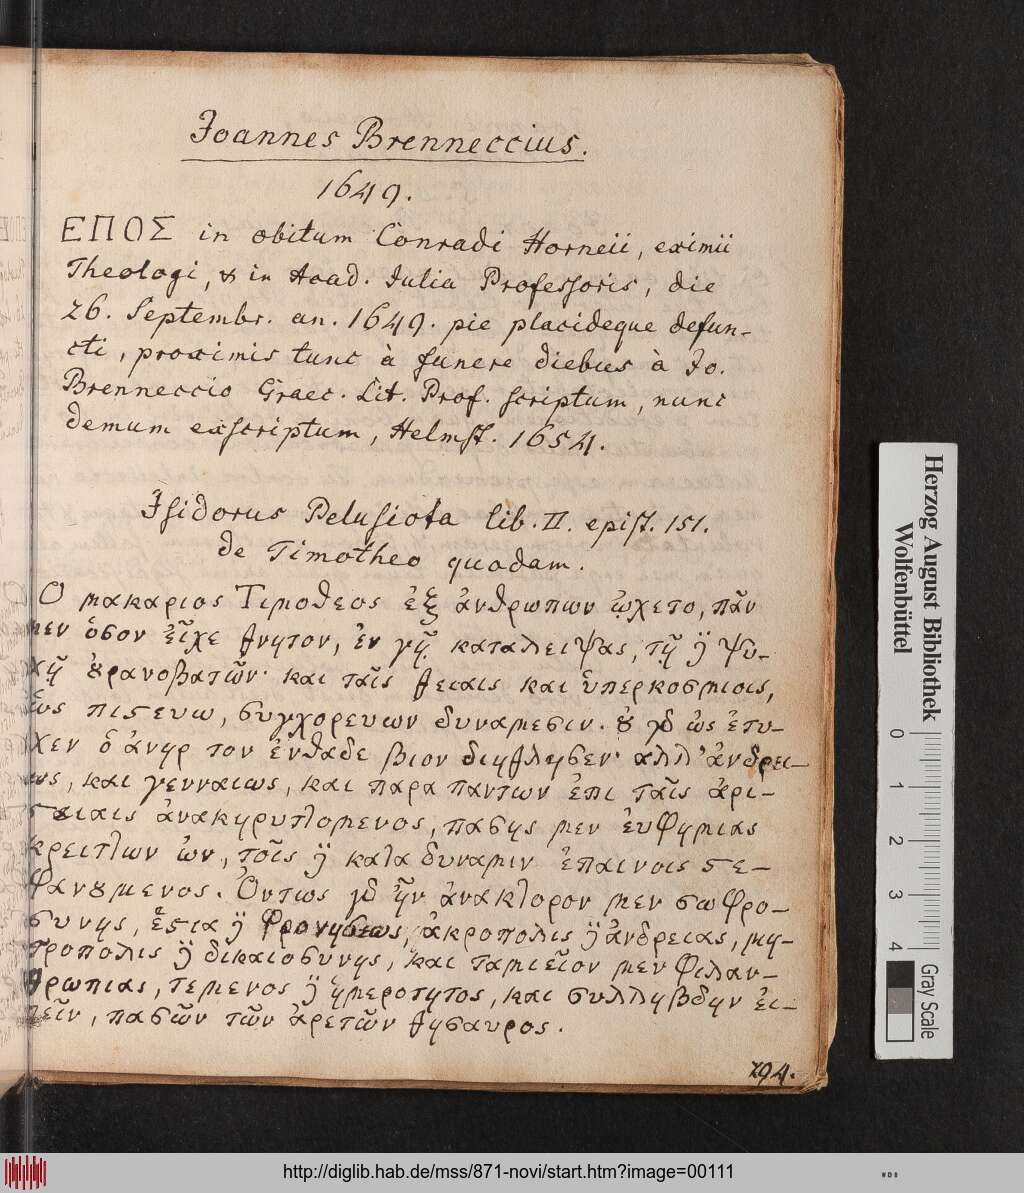 Joannes Brenneccius.
1649.
ΕΠΟΣ in obitum Conradi Horneii, eximii
Theologi, & in Acad. Julia Professoris, die
26. Septembr. an. 1649. pie placideque defun-
cti, proximis tunc à funere diebus à Jo.
Brenneccio Graec. Lit. Prof. scriptum, nunc
demum exscriptum, Helmst. 1654.
Isidorus Pelusiota lib. II. epist. 151.
de Timotheo quodam.
Ὁ μακαριος Τιμοθεος ἐξ ἀνθρωπων ᾤχετο, πᾶν
μεν ὁσον εἶχε θνητον, ἐν γῇ καταλειψας, τῇ δὲ ψυ-
χῇ ȣ̓ρανοβατῶν· και ταῖς θειαις και ὑπερκοσμιοις,
ὡς πιϛευω, συγχορευων δυναμεσιν. ȣ̓ γὰρ ὡς ἐτυ-
χεν ὁ ἀνηρ τον ἐνθαδε βιον διηθλησεν· ἀλλ' ἀνδρει-
ως, και γενναιως, και παρα παντων ἐπι ταῖς ἀρι-
ϛειαις ἀνακηρυττομενος, πασης μεν ἐυφημιας
κρειττων ὢν, τοῖς δὲ κατα δυναμιν ἐπαινοις ϛε-
φανȣμενος. Ὀντως γὰρ ἦν ἀνακτορον μεν σωφρο-
συνης, ἑϛια δὲ φρονησεως, ἀκροπολις δὲ ἀνδρειας, μη-
τροπολις δὲ δικαιοσυνης, και ταμιεῖον μεν φιλαν-
θρωπιας, τεμενος δὲ ἡμεροτητος, και συλληβδην ἐι-
πεῖν, πασῶν τῶν ἀρετῶν θησαυρος.
294.
Herzog August Bibliothek
Wolfenbüttel
0 1 2 3 4
Gray Scale
http://diglib.hab.de/mss/871-novi/start.htm?image=00111
WDB